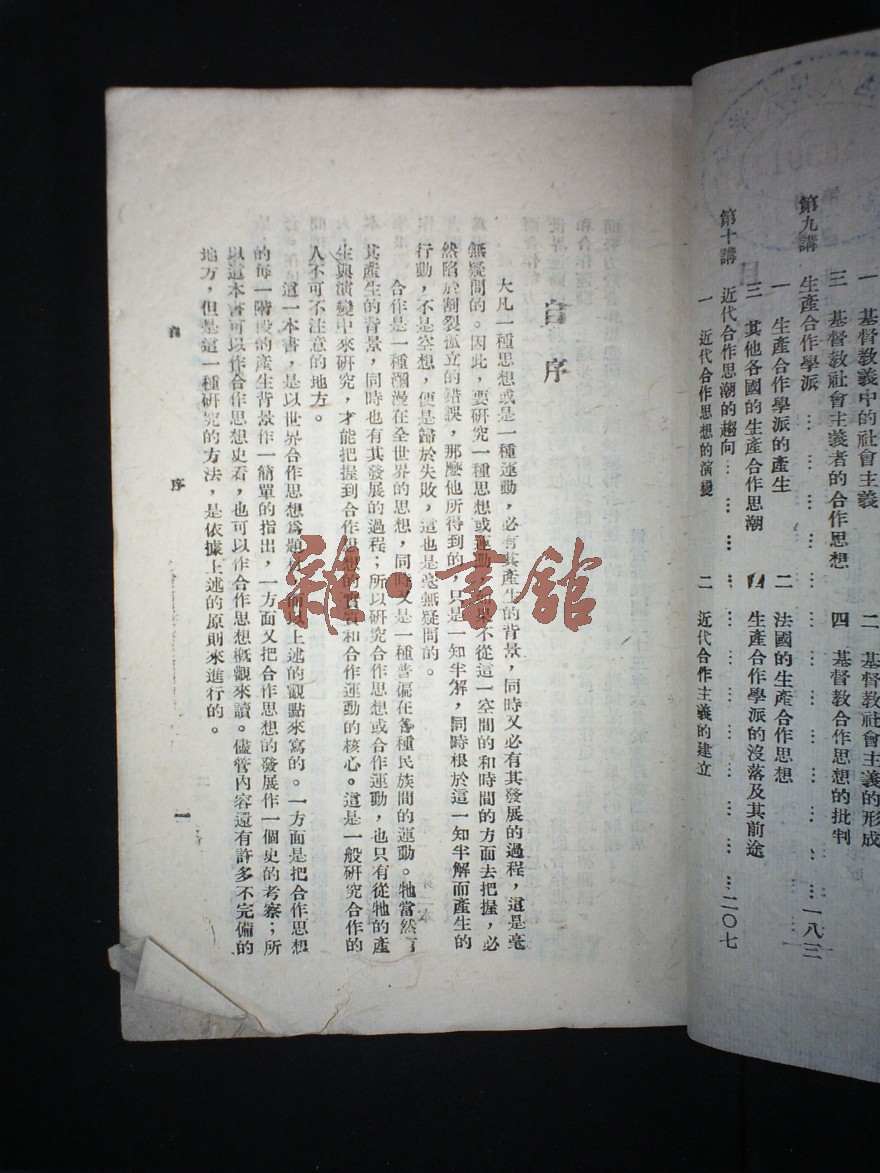 一 基督教義中的社會主義
二 基督教社會主義的形成
三 基督教社會主義者的合作思想
四 基督教合作思想的批判
第九講 生產合作學派 … … … … … … … … … 一八三
一 生產合作學派的產生
二 法國的生產合作思想
三 其他各國的生產合作思潮
生產合作學派的沒落及其前途
第十講 近代合作思潮的趨向 … … … … … … … … 二〇七
一 近代合作思想的演變
二 近代合作主義的建立
自序
大凡一種思想或是一種運動，必有其產生的背景，同時又必有其發展的過程，這是毫
無疑問的。因此，要研究一種思想或運動，如果不從這一空間的和時間的方面去把握，必
然陷於割裂孤立的錯誤，那麼他所得到的，只是一知半解，同時根於這一知半解而產生的
行動，不是空想，便是歸於失敗，這也是毫無疑問的。
合作是一種瀰漫在全世界的思想，同時又是一種普徧在各種民族間的運動。牠當然有
其產生的背景，同時也有其發展的過程；所以研究合作思想或合作運動，也只有從牠的產
生與演變中來研究，才能把握到合作思想的實質和合作運動的核心。這是一般研究合作的
人不可不注意的地方。
這一本書，是以世界合作思想爲題材，而以上述的觀點來寫的。一方面是把合作思想
的每一階段的產生背景作一簡單的指出，一方面又把合作思想的發展作一個史的考察；所
以這本書可以作合作思想史看，也可以作合作思想概觀來讀。儘管內容還有許多不完備的
地方，但是這一種研究的方法，是依據上述的原則來進行的。
自 序 一
雜·書館